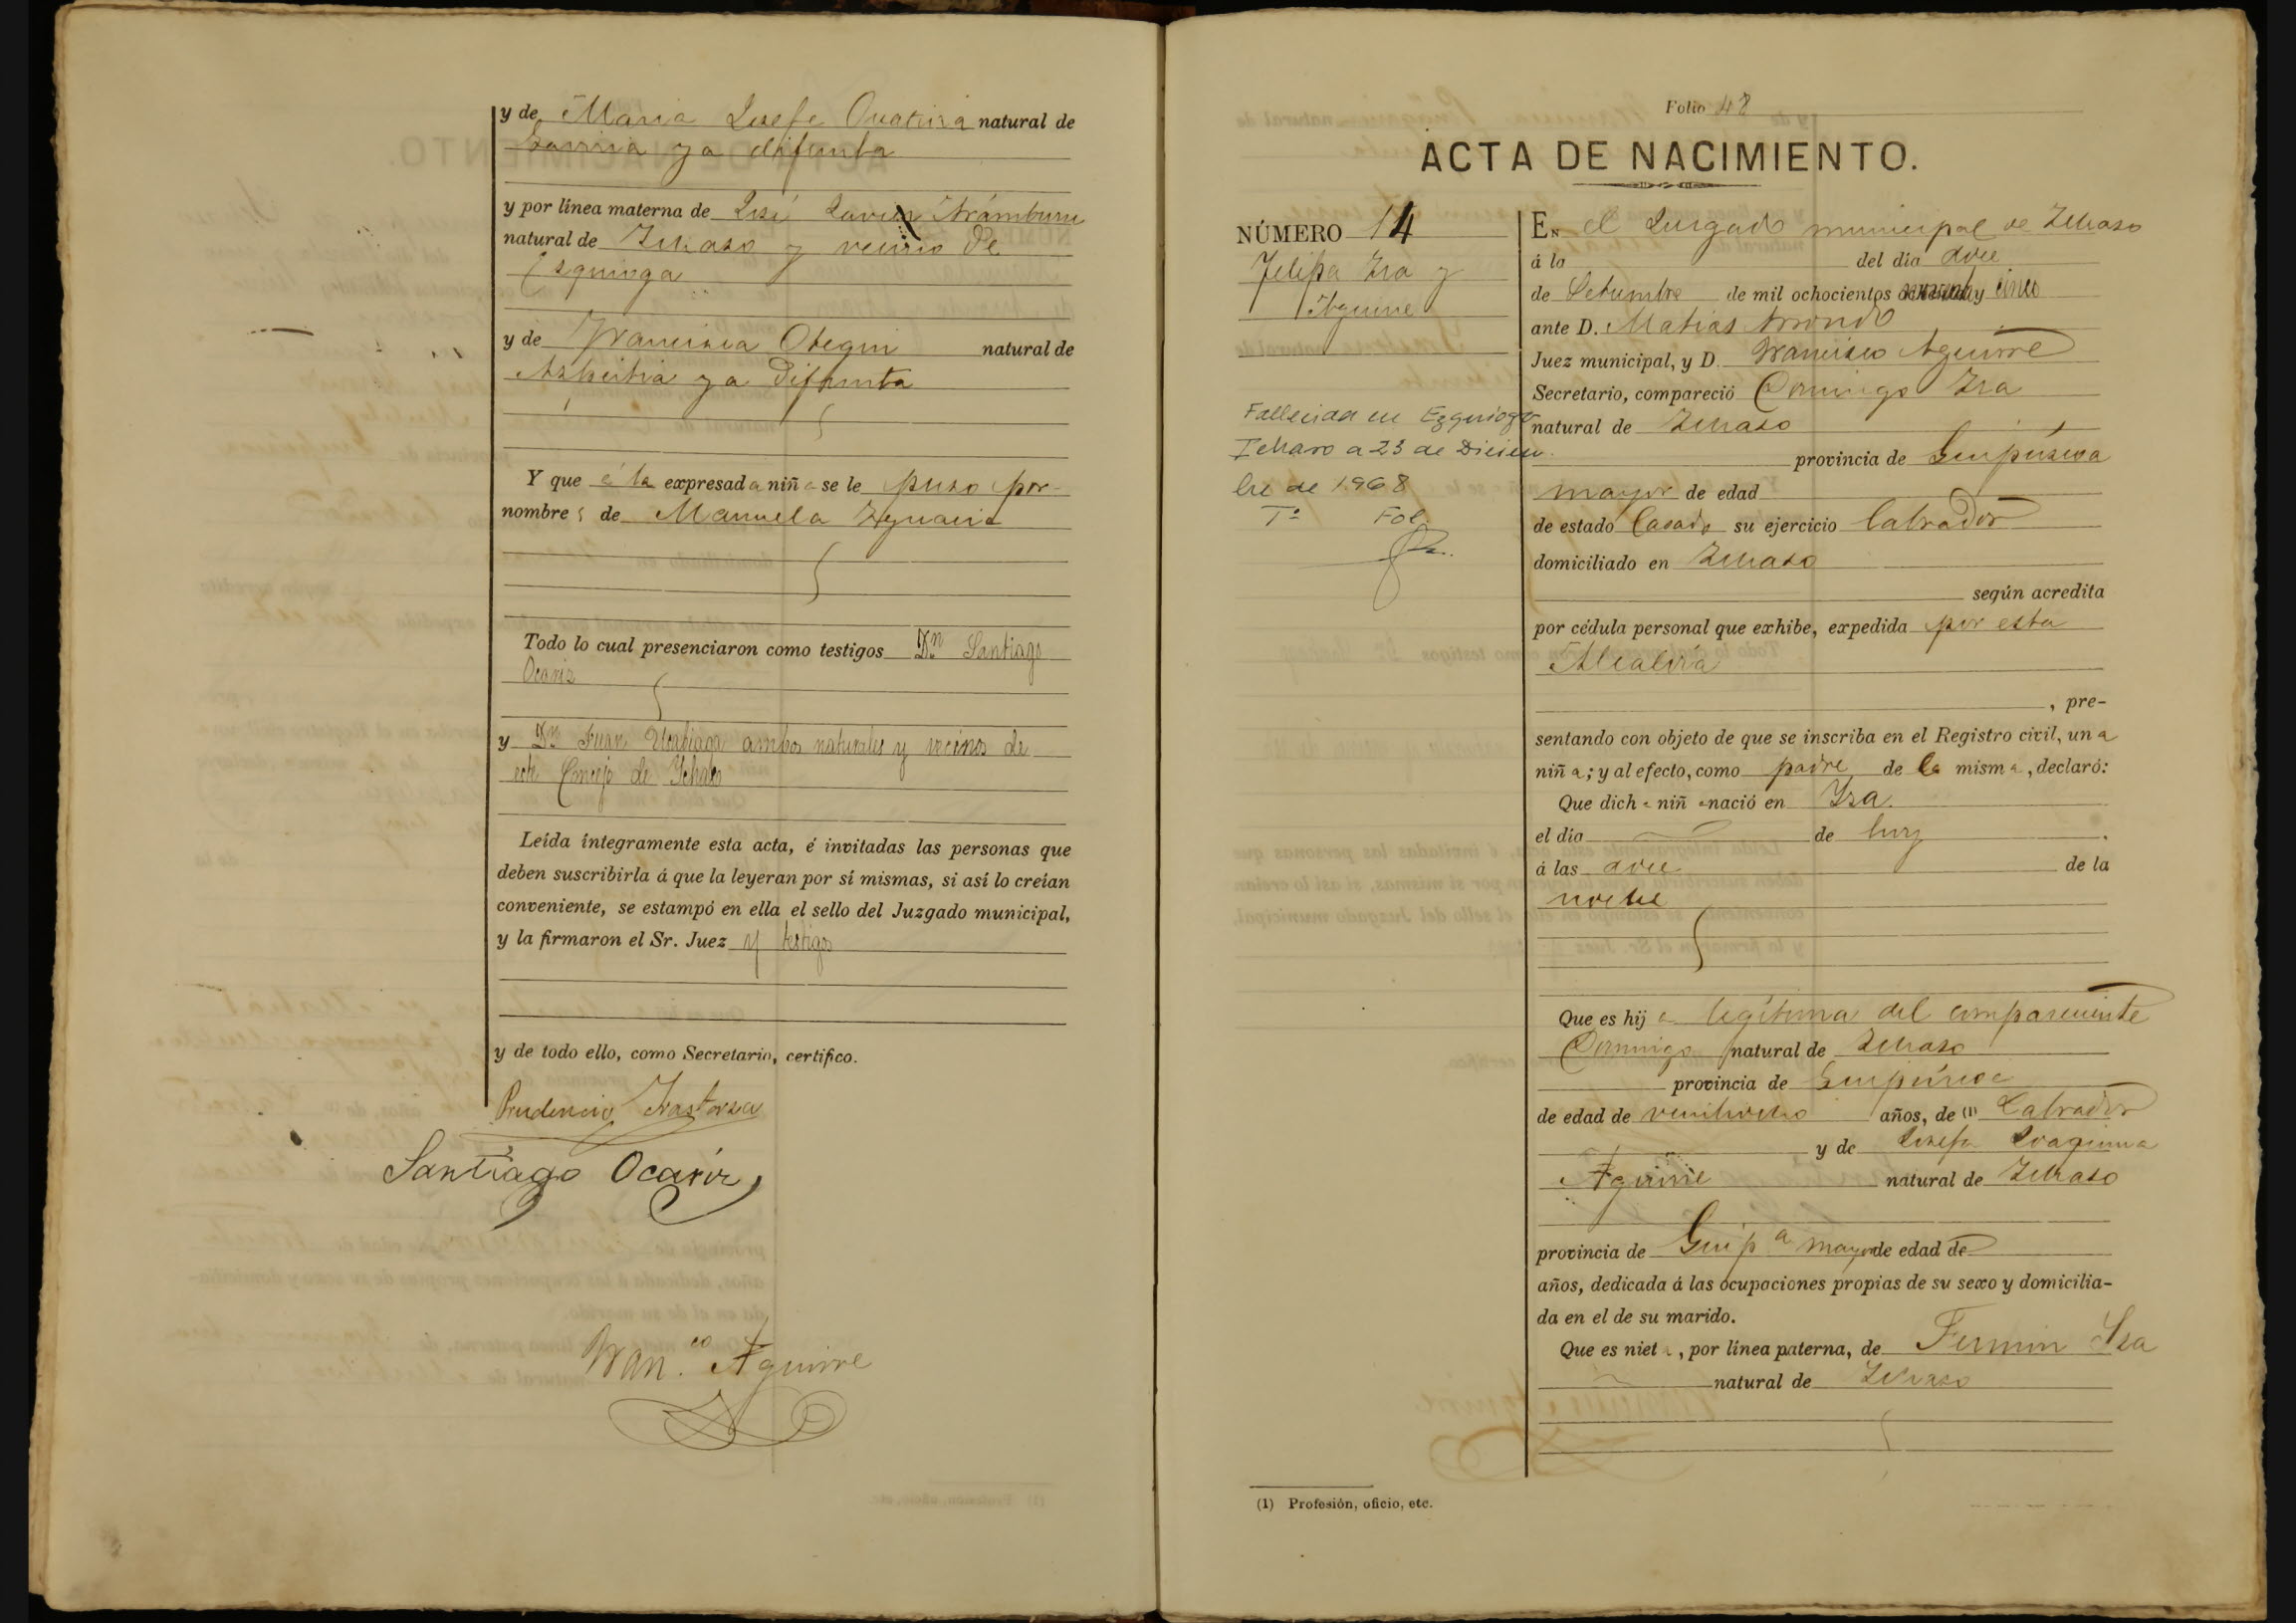 y de Maria Josefa natural de
ya difunta
y por línea materna de José Javier Arámburu
natural de Ichaso y vecino de
Ezquioga
y de Francisca Otegui natural de
Azpeitia ya difunta
Y que á la expresada niña se le puso por
nombres de Manuela Ygnacia
Todo lo cual presenciaron como testigos Dn Santiago
Ocariz
y Dn Juan ambos naturales y vecinos de
este Concejo de Ychaso
Leída íntegramente esta acta, é invitadas las personas que
deben suscribirla á que la leyeran por sí mismas, si así lo creían
conveniente, se estampó en ella el sello del Juzgado municipal,
y la firmaron el Sr. Juez y testigos
y de todo ello, como Secretario, certifico.
Prudencio Yrastorza
Santiago Ocariz
Fran.co Aguirre
Folio 48
ACTA DE NACIMIENTO.
NÚMERO 14
Felipa Yza y
Aguirre
Fallecida en Ezquioga
Ichaso a 23 de Diciem
bre de 1968
Tº Fol
EN el Juzgado municipal de Ichaso
á la del día doce
de Setiembre de mil ochocientos noventa y cinco
ante D. Matias Arrondo
Juez municipal, y D. Francisco Aguirre
Secretario, compareció Domingo Yza
natural de Ichaso
provincia de Guipúzcoa
mayor de edad
de estado Casado su ejercicio labrador
domiciliado en Ichaso
según acredita
por cédula personal que exhibe, expedida por esta
Alcaldía
, pre-
sentando con objeto de que se inscriba en el Registro civil, una
niña; y al efecto, como padre de la misma, declaró:
Que dicha niña nació en Yza.
el día de hoy
á las doce de la
noche
Que es hija legítima del compareciente
Domingo natural de Ichaso
provincia de Guipúzcoa
de edad de veintiocho años, de (1) Labrador
y de Josefa Joaquina
Aguirre natural de Ichaso
provincia de Guipa mayor de edad de
años, dedicada á las ocupaciones propias de su sexo y domicilia-
da en el de su marido.
Que es nieta, por línea paterna, de Fermin Yza
natural de Ichaso
(1) Profesión, oficio, etc.